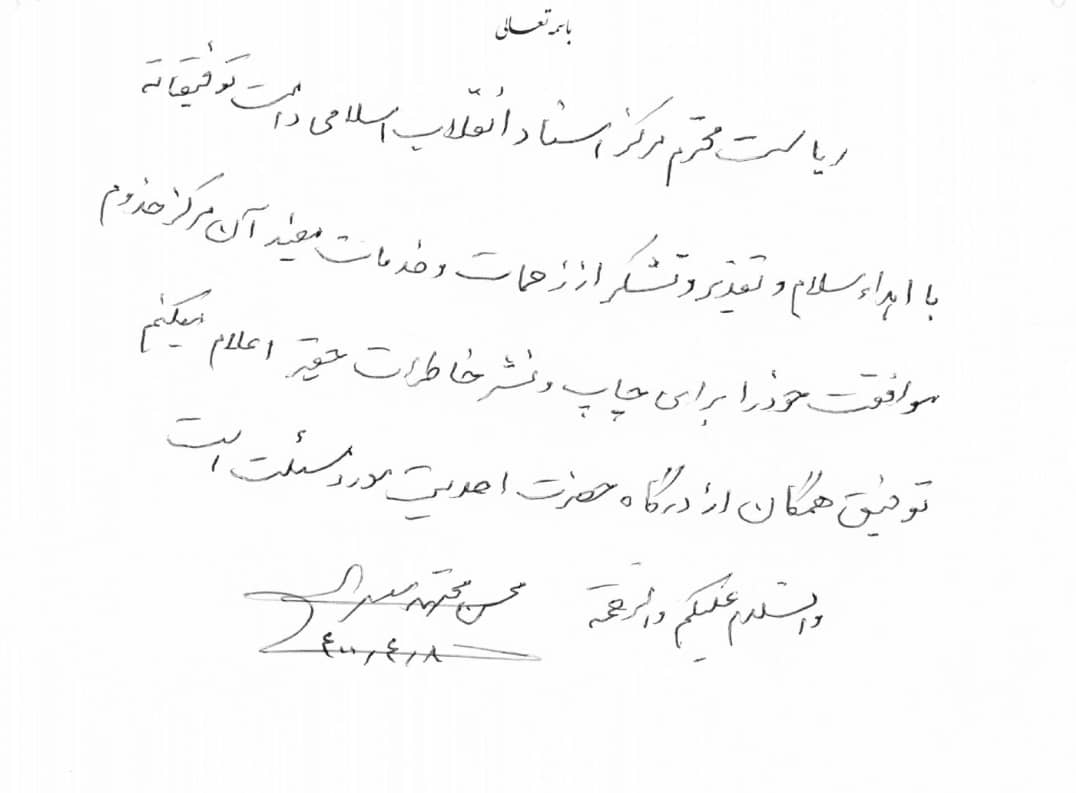 باسمه تعالی
ریاست محترم مرکز اسناد انقلاب اسلامی دامت توفیقاته
با اهداء سلام و تقدیر و تشکر از زحمات و خدمات مفید آن مرکز خدوم
موافقت خود را برای چاپ و نشر خاطرات حقیر اعلام میکنم
توفیق همگان از درگاه حضرت احدیت مورد مسئلت است
والسلام علیکم والرحمة
محسن مجتهد
۴۰۰٫۴٫۸